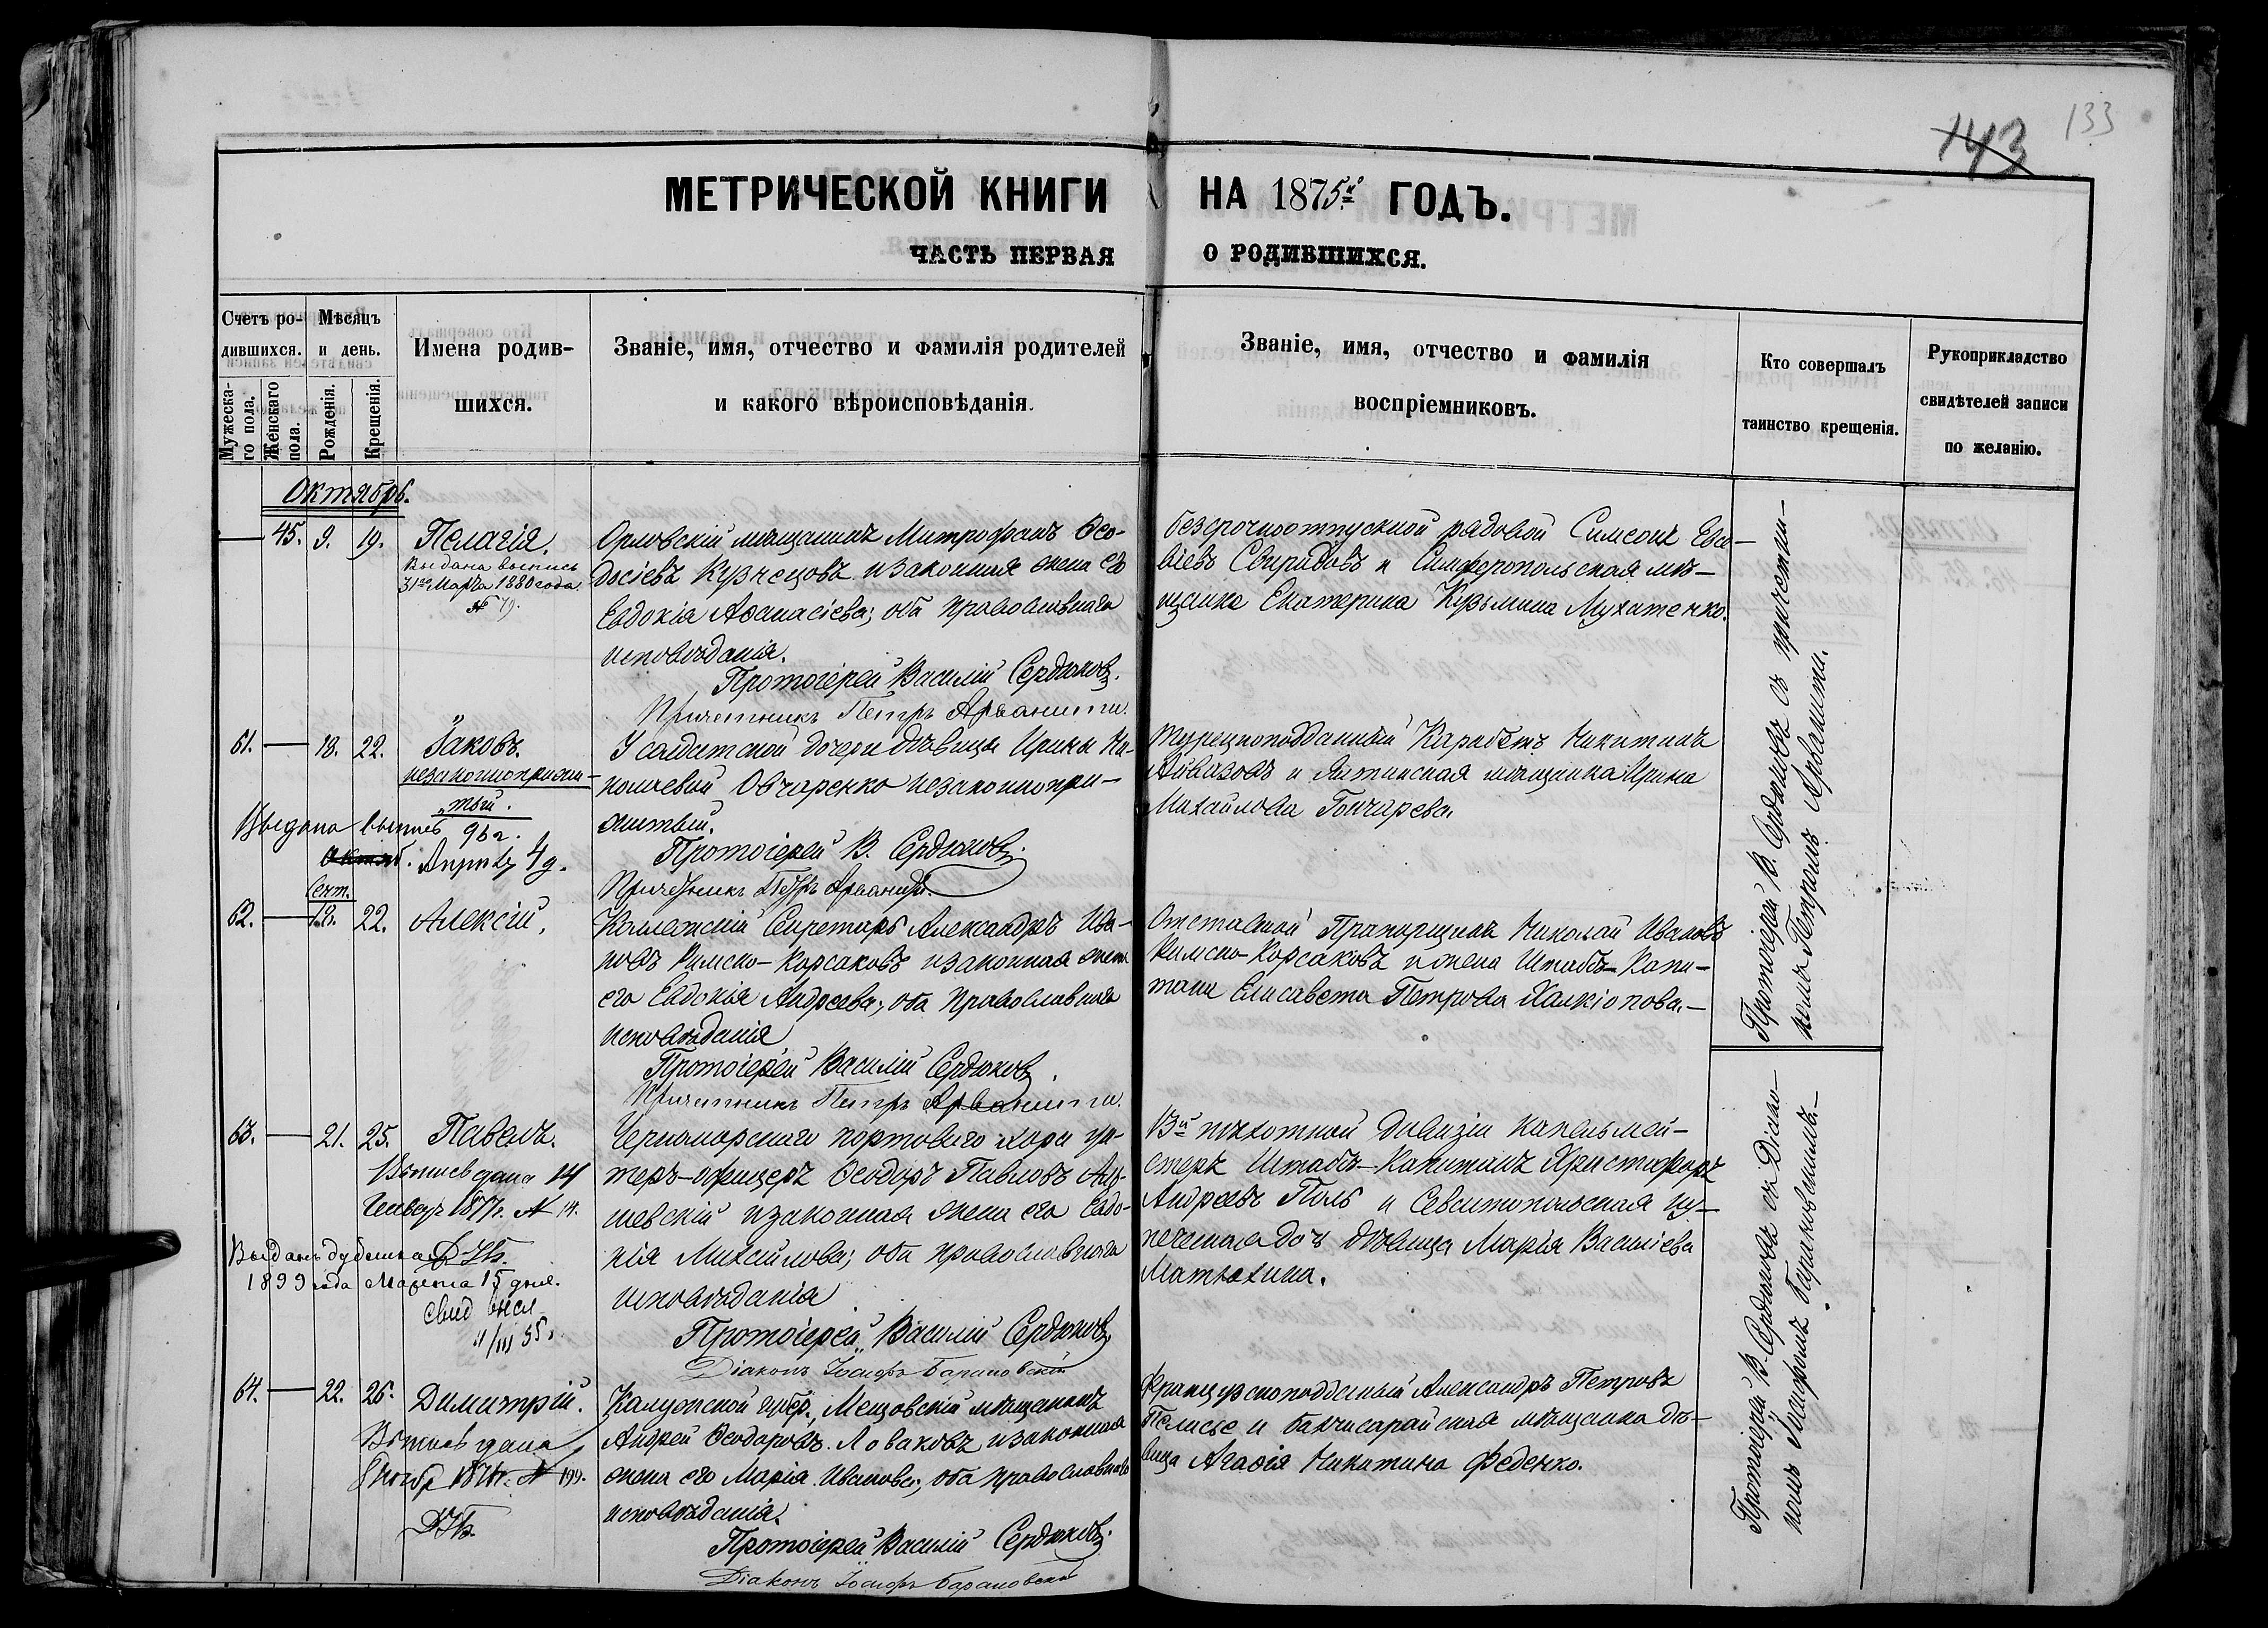 143
133
МЕТРИЧЕСКОЙ КНИГИ НА 1875й ГОДЪ.
ЧАСТЬ ПЕРВАЯ О РОДИВШИХСЯ.
Счетъ ро-
дившихся.
Мужеска-
го пола.
Женскаго
пола.
Мѣсяцъ
и день.
Рожденія.
Крещенія.
Имена родив-
шихся.
Званіе, имя, отчество и фамилія родителей
и какого вѣроисповѣданія.
Званіе, имя, отчество и фамилія
воспріемниковъ.
Кто совершалъ
таинство крещенія.
Рукоприкладство
свидѣтелей записи
по желанію.
Октябрь.
45. 9. 19. Пелагія.
Выдана выпись
31го Марта 1880 года
№ 79.
Орловскій мѣщанинъ Митрофанъ Ѳео-
досіевъ Кузнецовъ и законная жена его
Евдокія Аѳанасіева; оба православнаго
исповѣданія.
Протоіерей Василій Сердюковъ.
Причетникъ Петръ Арванити.
безсрочноотпускной рядовой Симеонъ Евсе-
віевъ Свиридовъ и Симферопольская мѣ-
щанка Екатерина Кузьмина Мухатенко.
61. 18. 22. Іаковъ.
незаконноприжи-
тый.
Выдана выпись 96 г.
Октяб. Апрѣль 4 д.
У солдатской дочери дѣвицы Ирины На-
умовой Овчаренко незаконнопри-
житый.
Протоіерей В. Сердюковъ.
Причетникъ Петръ Арванити.
Турецкоподданный Карабетъ Никитинъ
Айвазовъ и Ялтинская мѣщанка Ирина
Михайлова Гончарева.
Сент.
62. 12. 22. Алексій.
Коллежскій Секретарь Александръ Ива-
новъ Римско-Корсаковъ и законная жена
его Евдокія Андреева; оба православнаго
исповѣданія
Протоіерей Василій Сердюковъ.
Причетникъ Петръ Арванити.
Отставной Прапорщикъ Николай Ивановъ
Римско-Корсаковъ и жена Штабсъ-Капи-
тана Елисавета Петрова Халкіопова.-
63. 21. 25. Павелъ.
Выпись дана 14
Генвар 1877г. № 14.
Выданъ дубликатъ
1899 года Марта 15 дня.
свид высл
11/III 55 г.
Черноморскаго портоваго хора ун-
теръ-офицеръ Ѳеодоръ Павловъ
и законная жена его Евдо-
кія Михайлова; оба православнаго
исповѣданія
Протоіерей Василій Сердюковъ
Діаконъ Іосифъ Барановскій
13й пѣхотной дивизіи капельмей-
стеръ Штабсъ-Капитанъ Христофоръ
Андреевъ Поль и Севастопольская ку-
печеская дочь дѣвица Марія Василіева
Матюхина.
64. 22. 26. Димитрій.
Выпись дана
8 нояб 1876г. № 199.
Калужской губер., Мещовскій мѣщанинъ
Андрей Ѳеодоровъ Новаковъ и законная
жена его Марія Иванова; оба православнаго
исповѣданія.
Протоіерей Василій Сердюковъ.
Діаконъ Іосифъ Барановскій
Французскоподданный Александръ Петровъ
Пелисье и бахчисарайская мѣщанка дѣ-
вица Агаѳія Никитина Феденко.
Протоіерей В. Сердюковъ съ причетни-
комъ Петромъ Арванити.
Протоіерей В. Сердюковъ съ Діако-
номъ Іосифомъ Барановскимъ.-